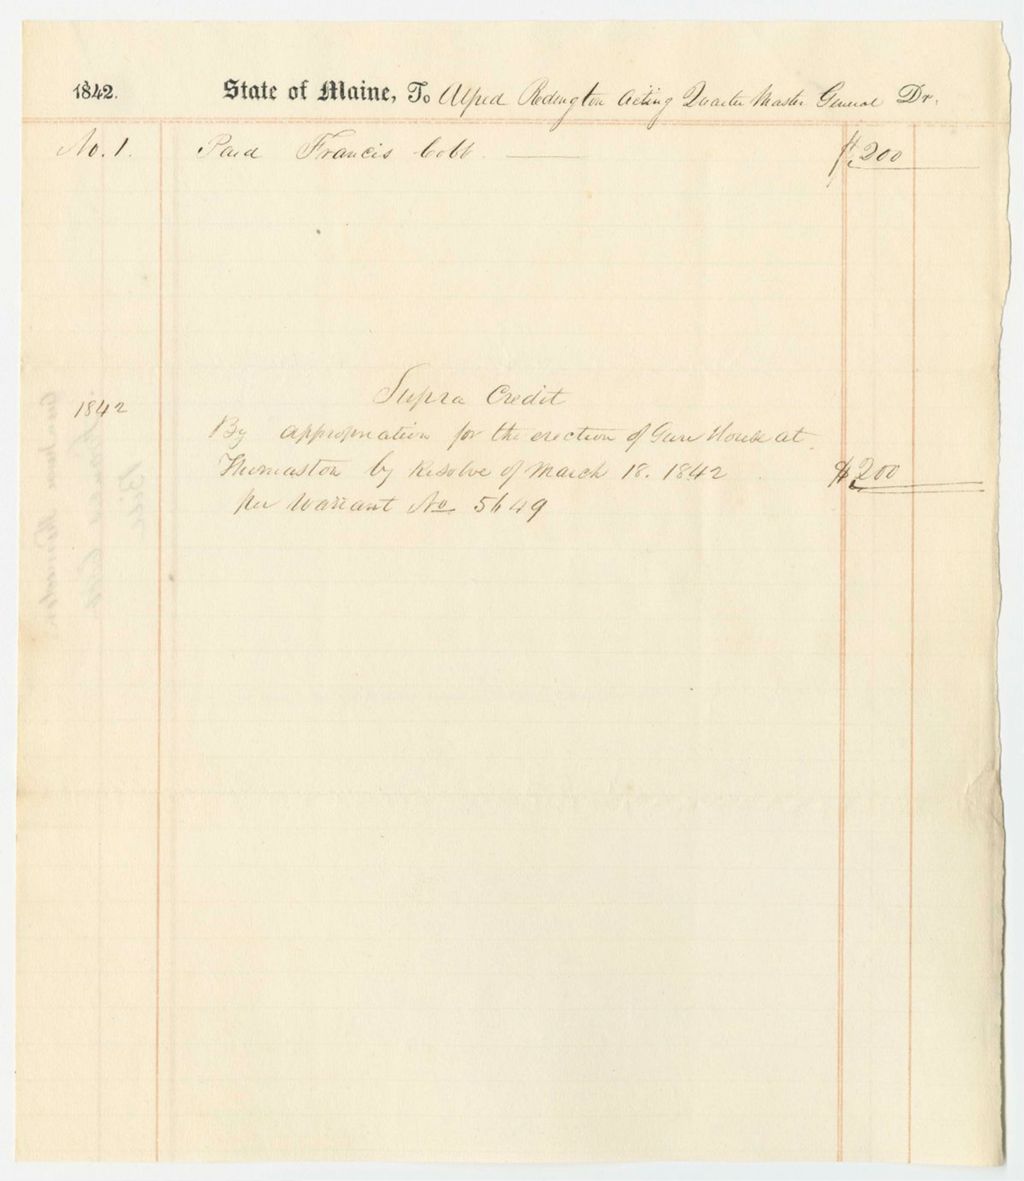 1842. State of Maine, To Alfred Redington Acting Quarter Master General Dr.
No. 1. Paid Francis Cobb. $200
Supra Credit
1842
By appropriation for the erection of Gun House at
Thomaston by Resolve of March 18. 1842 $200
per Warrant No 5649